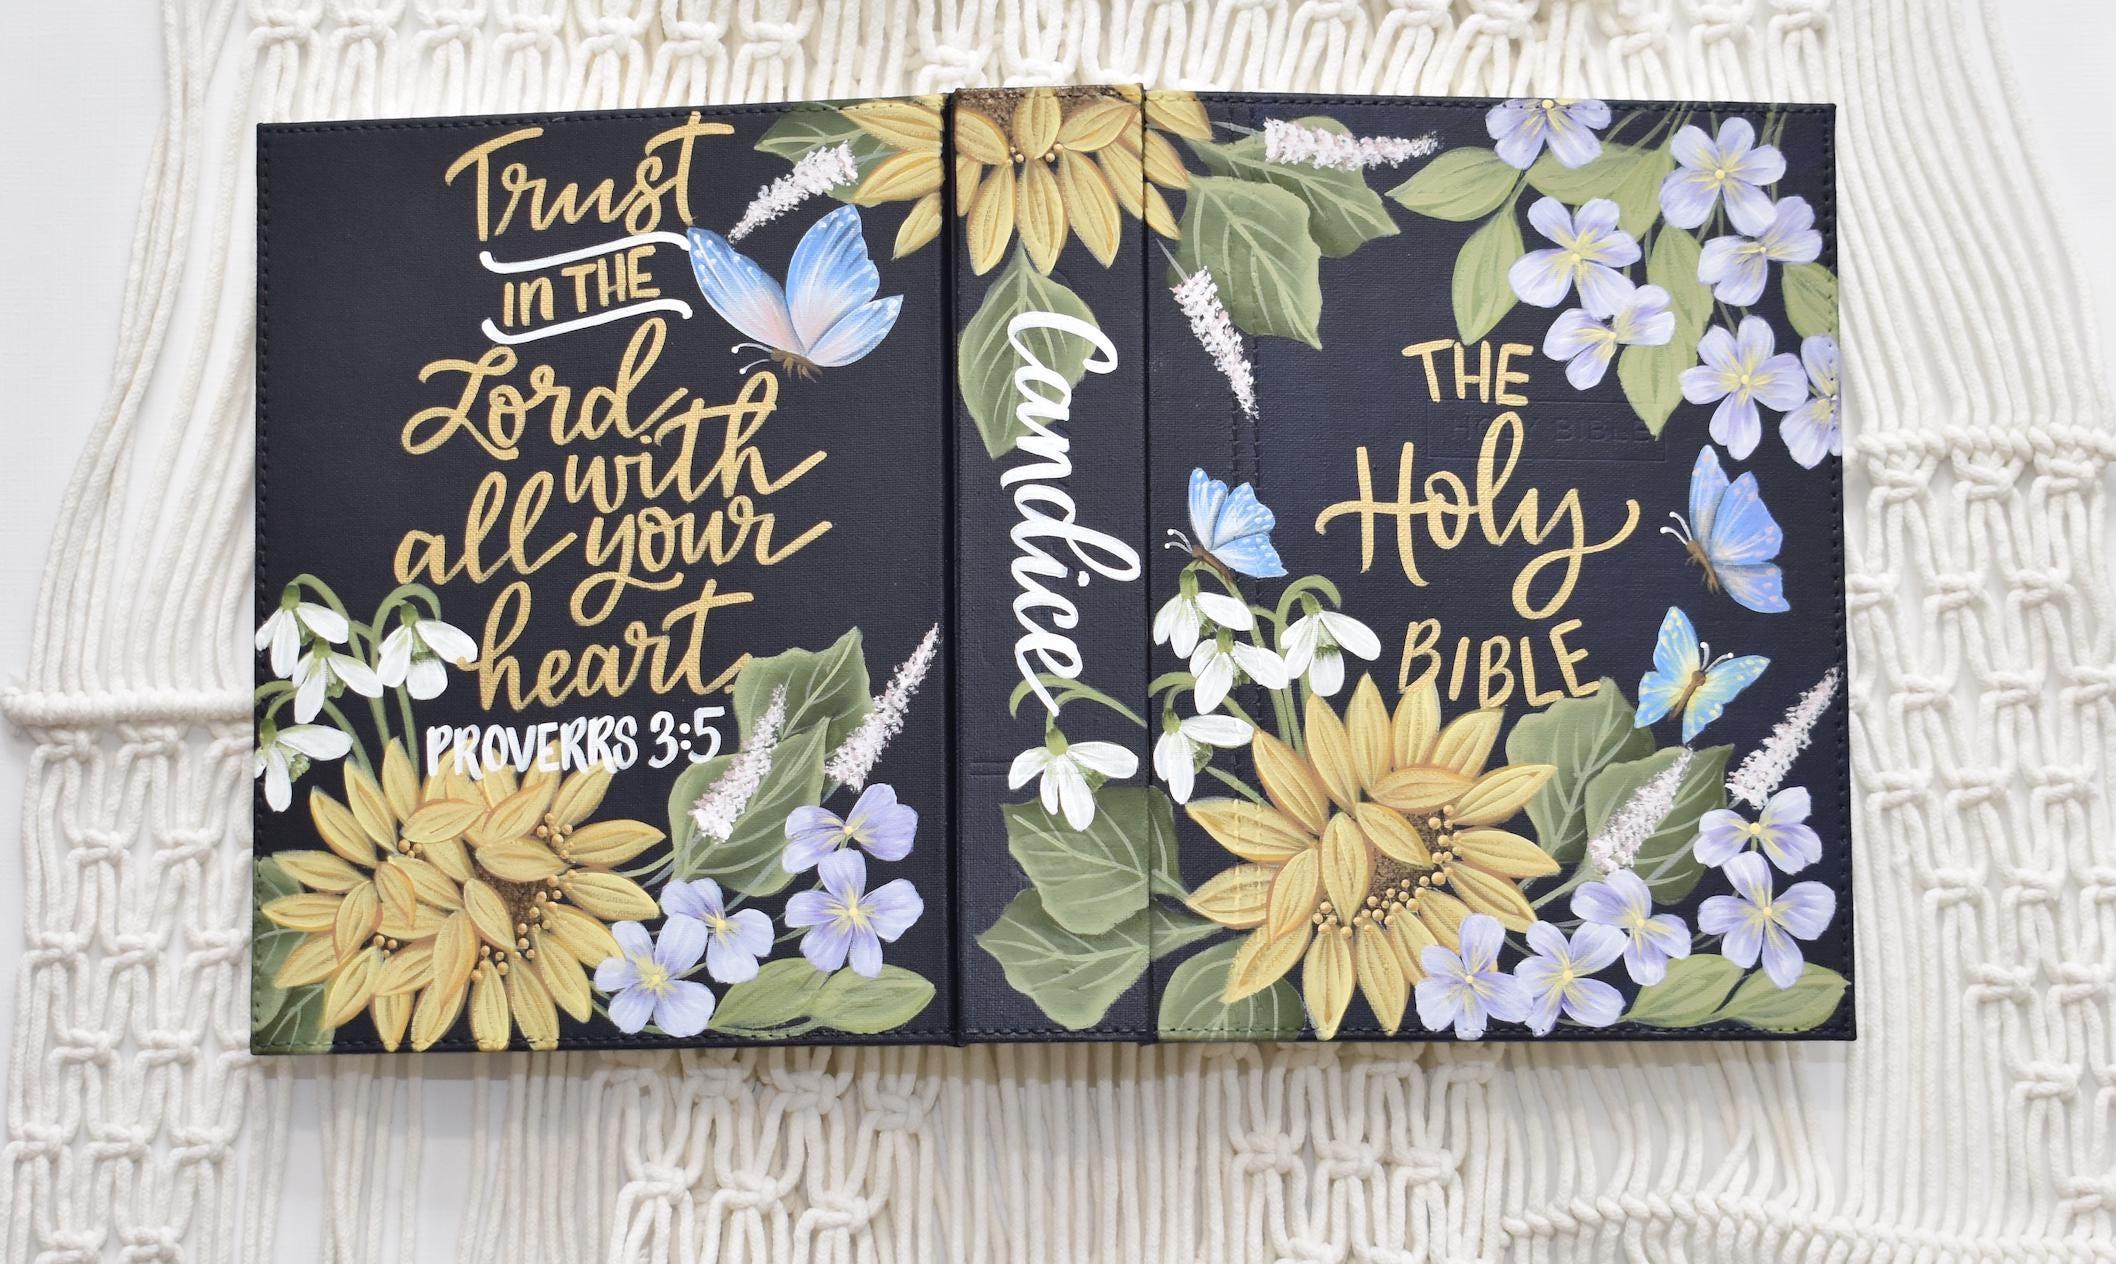 Trust
in THE
Lord
with
all your
heart.
PROVERRS 3:5
Candice
THE
HOLY BIBLE
Holy
BIBLE